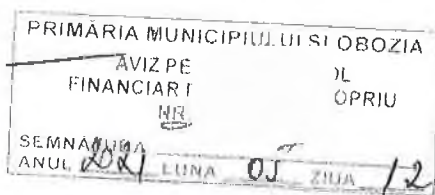 PRIMĂRIA MUNICIPIULUI SLOBOZIA
AVIZ PE OL
FINANCIAR OPRIU
NR.
SEMNĂTURA
ANUL 2021 LUNA 05 ZIUA 12